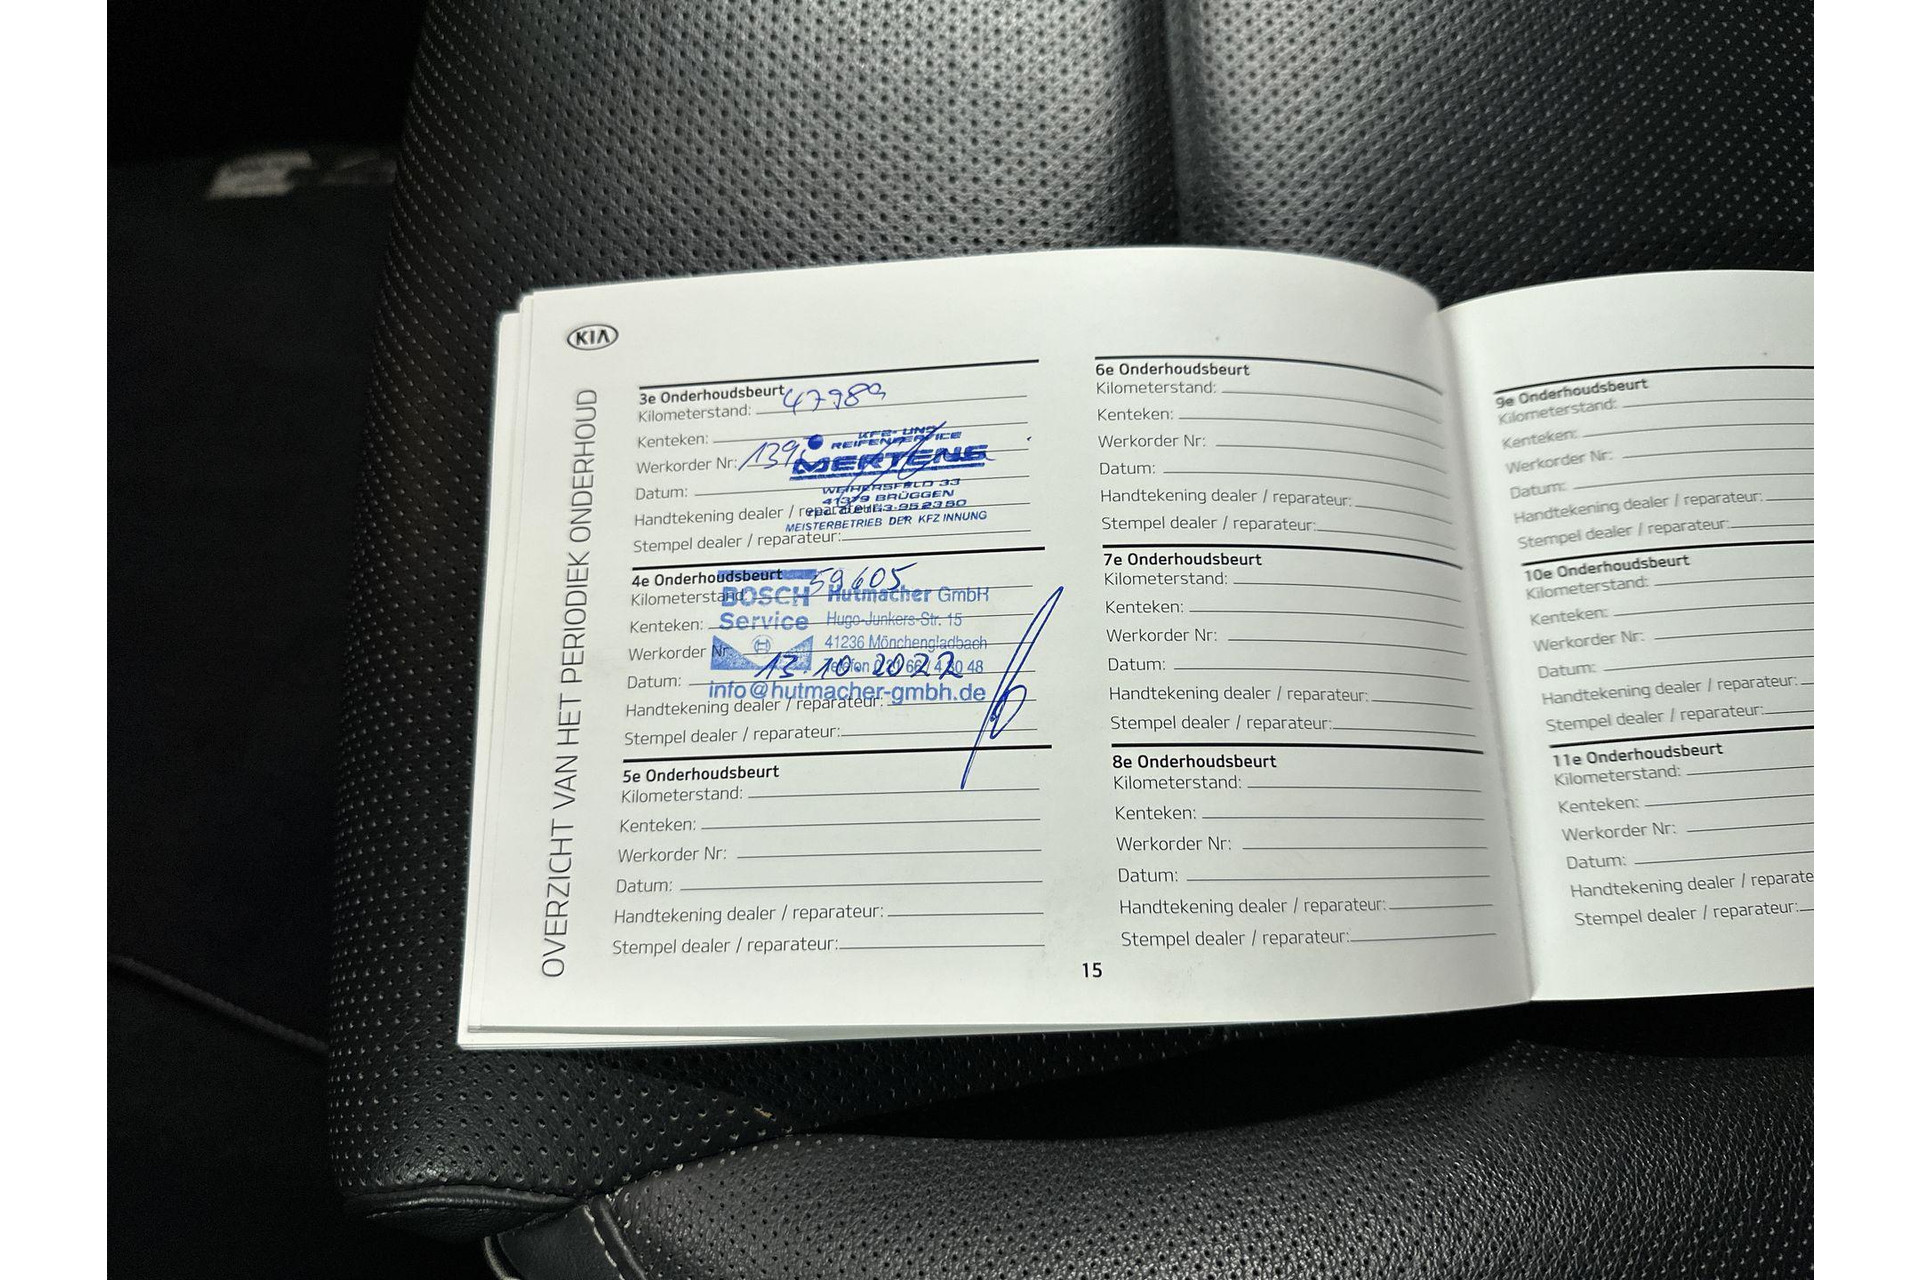 KIA
OVERZICHT VAN HET PERIODIEK ONDERHOUD
3e Onderhoudsbeurt
Kilometerstand: 47989
Kenteken:
Werkorder Nr:
KFZ- UND
REIFENSERVICE
MERTENS
Datum:
WEIHERSFELD 33
41379 BRÜGGEN
Handtekening dealer / reparateur:
MEISTERBETRIEB DER KFZ INNUNG
Stempel dealer / reparateur:
4e Onderhoudsbeurt
Kilometerstand: 59605
BOSCH Hutmacher GmbH
Kenteken:
Service Hugo-Junkers-Str. 15
Werkorder Nr
41236 Mönchengladbach
Telefon
Datum: 13.10.2022
info@hutmacher-gmbh.de
Handtekening dealer / reparateur:
Stempel dealer / reparateur:
5e Onderhoudsbeurt
Kilometerstand:
Kenteken:
Werkorder Nr:
Datum:
Handtekening dealer / reparateur:
Stempel dealer / reparateur:
6e Onderhoudsbeurt
Kilometerstand:
Kenteken:
Werkorder Nr:
Datum:
Handtekening dealer / reparateur:
Stempel dealer / reparateur:
7e Onderhoudsbeurt
Kilometerstand:
Kenteken:
Werkorder Nr:
Datum:
Handtekening dealer / reparateur:
Stempel dealer / reparateur:
8e Onderhoudsbeurt
Kilometerstand:
Kenteken:
Werkorder Nr:
Datum:
Handtekening dealer / reparateur:
Stempel dealer / reparateur:
15
9e Onderhoudsbeurt
Kilometerstand:
Kenteken:
Werkorder Nr:
Datum:
Handtekening dealer / reparateur:
Stempel dealer / reparateur:
10e Onderhoudsbeurt
Kilometerstand:
Kenteken:
Werkorder Nr:
Datum:
Handtekening dealer / reparateur:
Stempel dealer / reparateur:
11e Onderhoudsbeurt
Kilometerstand:
Kenteken:
Werkorder Nr:
Datum:
Handtekening dealer / reparate
Stempel dealer / reparateur: